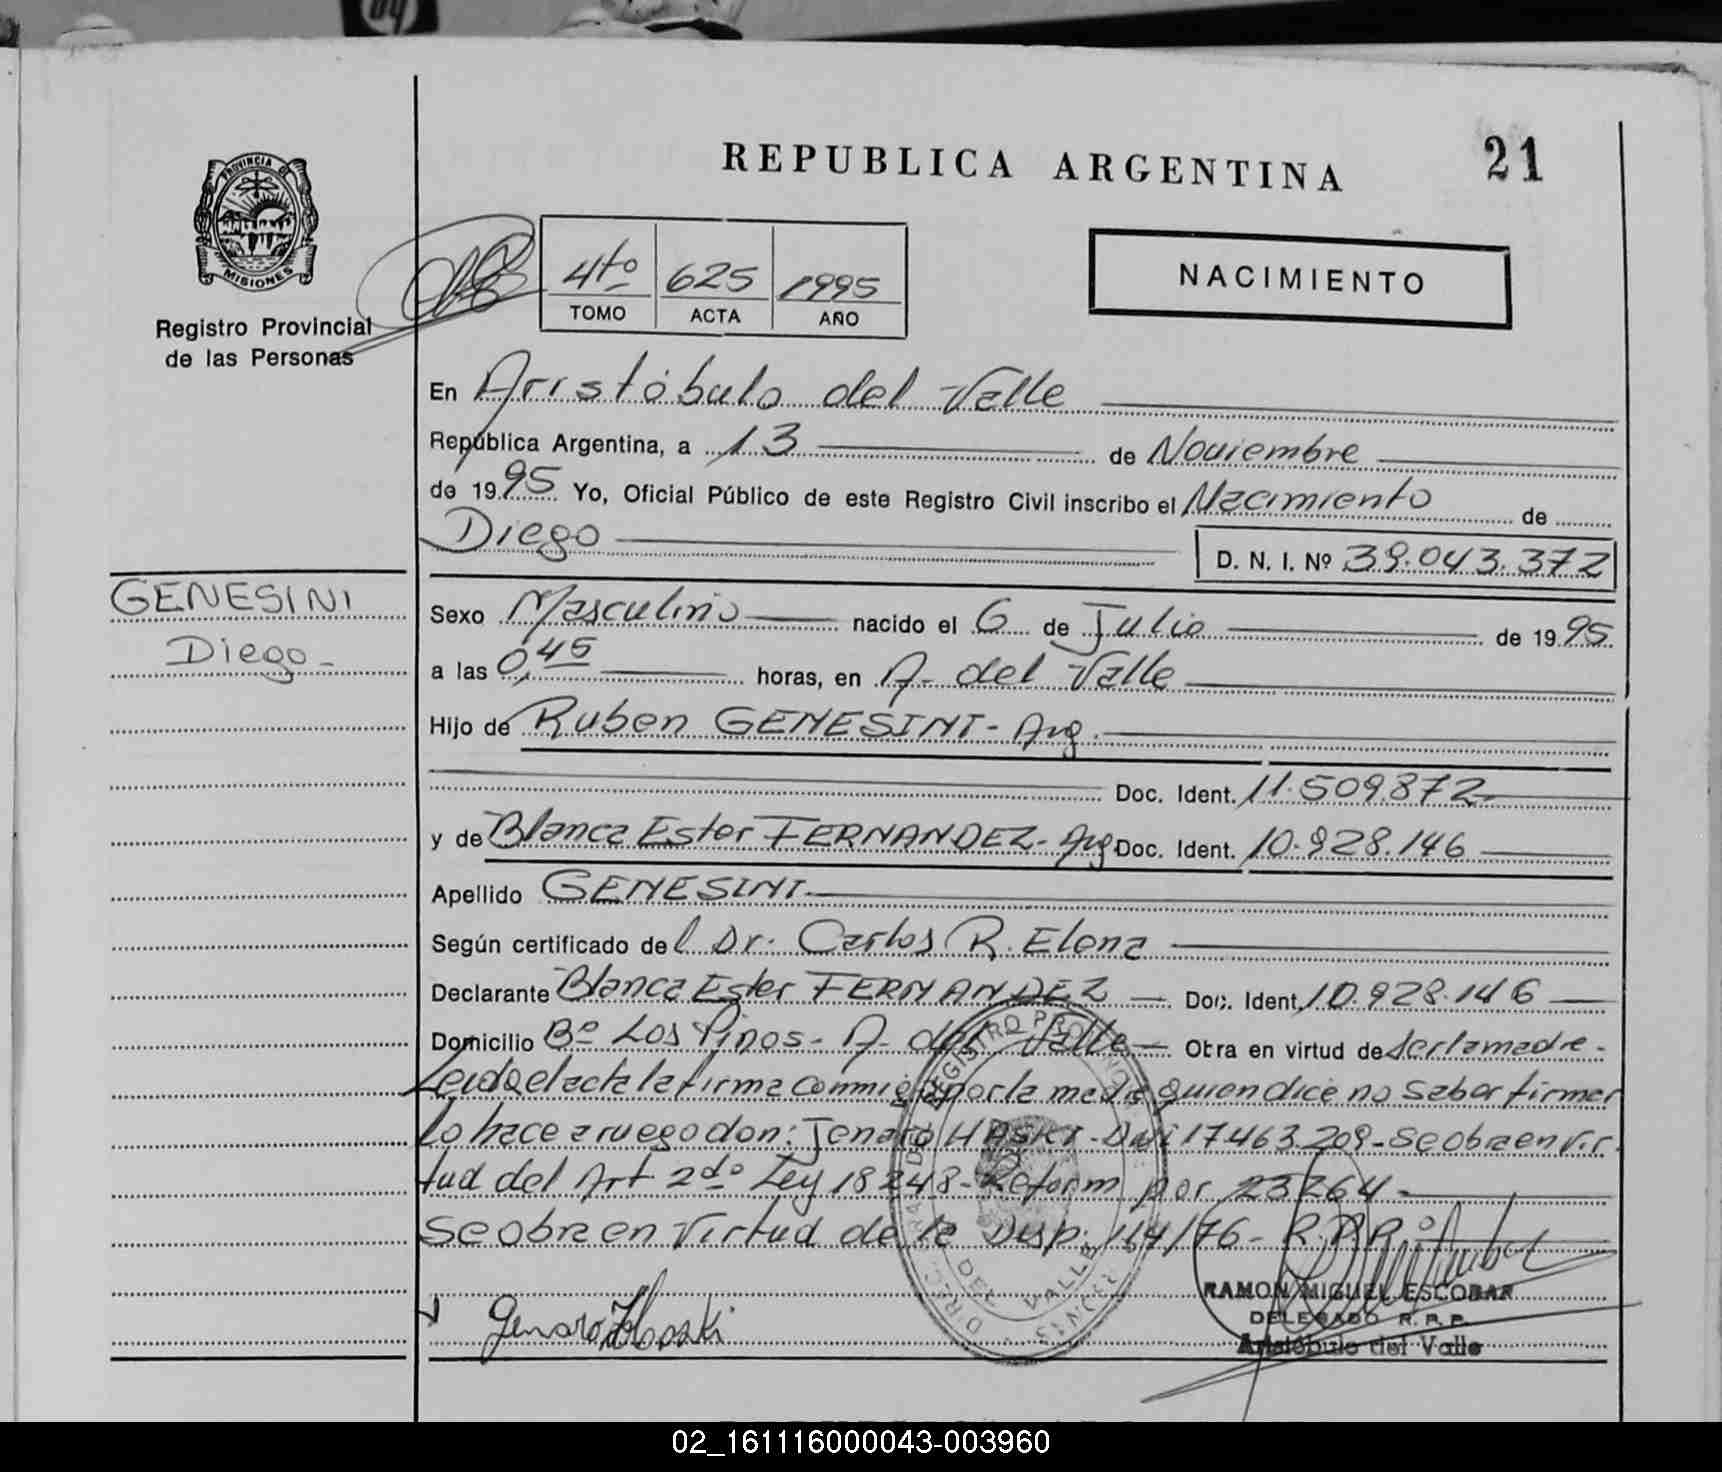 hp
REPUBLICA ARGENTINA
21
PROVINCIA DE
MISIONES
Registro Provincial
de las Personas
4to 625 1995
TOMO ACTA AÑO
NACIMIENTO
En Aristóbulo del Valle
República Argentina, a 13 de Noviembre
de 1995 Yo, Oficial Público de este Registro Civil inscribo el Nacimiento de
Diego D. N. I. Nº 39.043.372
GENESINI
Diego-
Sexo Masculino nacido el 6 de Julio de 1995.
a las 0,45 horas, en A. del Valle
Hijo de Ruben GENESINI - Arg.
Doc. Ident. 11.509.872
y de Blanca Ester FERNANDEZ - Arg Doc. Ident. 10.928.146
Apellido GENESINI
Según certificado del Dr. Carlos R. Elena
Declarante Blanca Ester FERNANDEZ Doc. Ident. 10.928.146
Domicilio Bº Los Pinos - A. del Valle Obra en virtud de ser la madre -
Leida el acta la firma commigo por la madre quien dice no saber firmar
lo hace a ruego don: Jenaro 17.463.209 - Se obra en vir
tud del Art 2do Ley 18248 - Reform por 23264 -
Se obra en Virtud de la Disp. 114/76 - R.P.P.
RAMON MIGUEL ESCOBAR
DELEGADO R. P. P.
Aristóbulo del Valle
Genaro
02_161116000043-003960